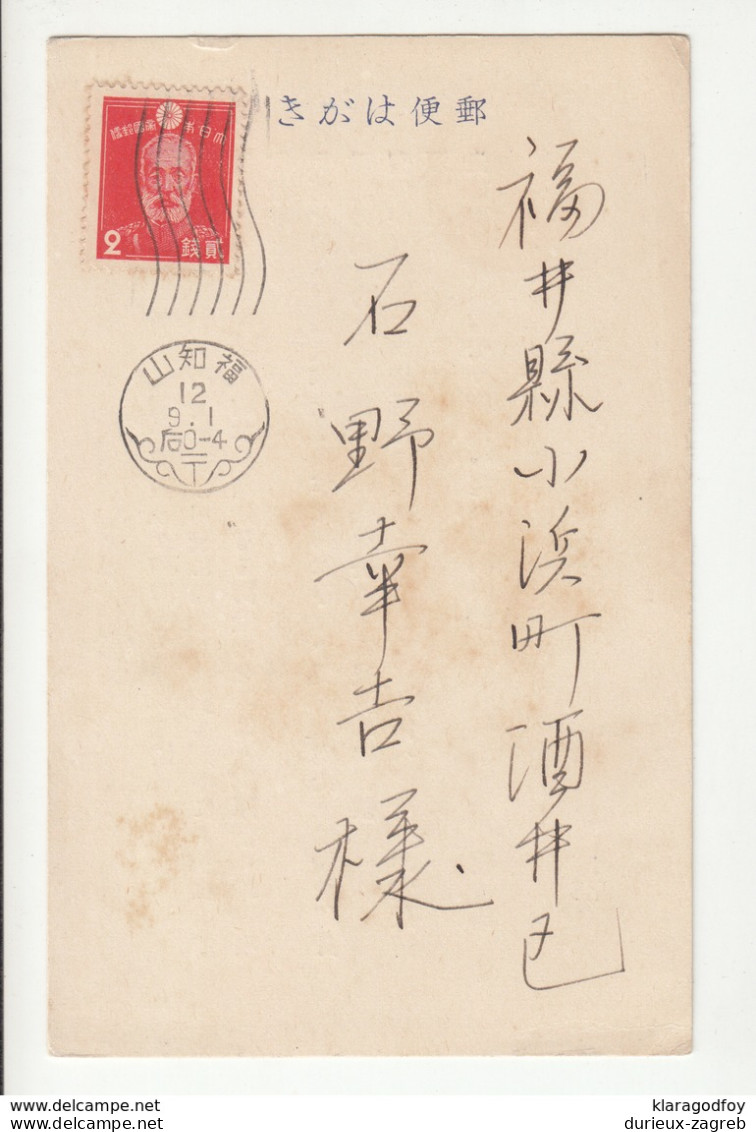 郵便はがき
大日本帝國郵便
2 貳錢
福知山
12
9.1
后0-4
福井縣小浜町酒井区
石野幸吉様
klaragodfoy
durieux-zagreb